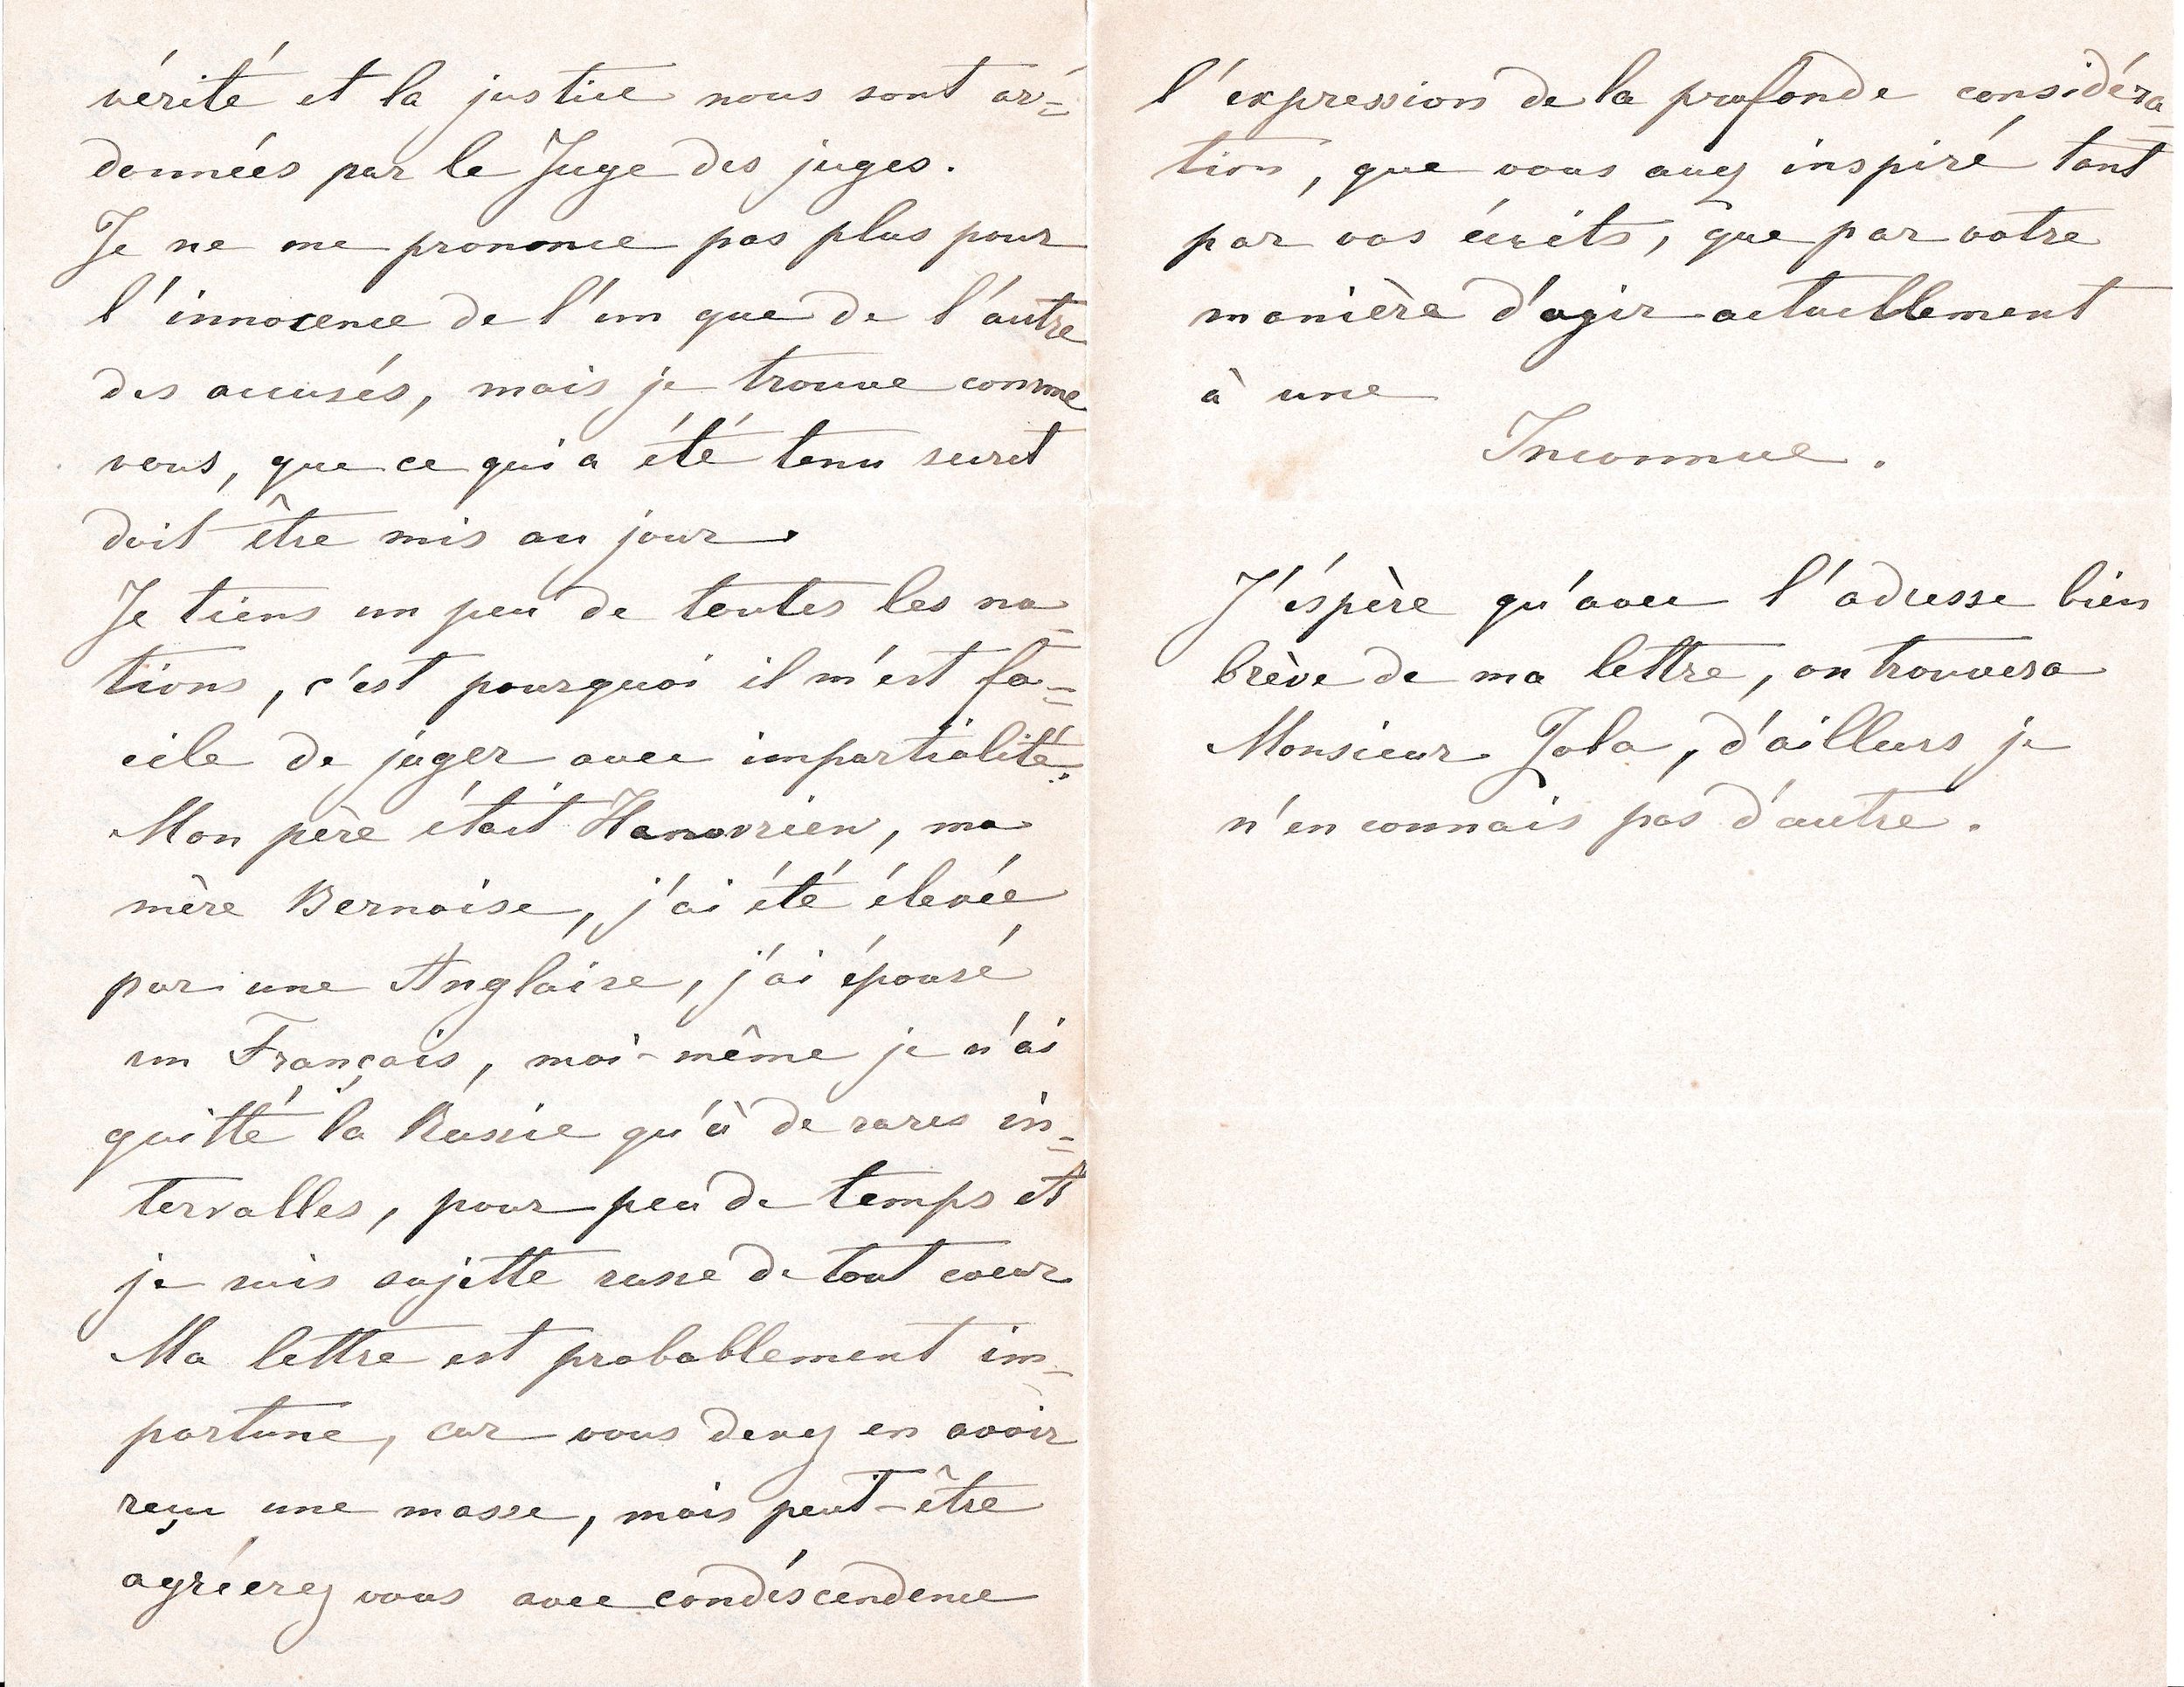 vérité et la justice nous sont or=
données par le Juge des juges.
Je ne me prononce pas plus pour
l'innocence de l'un que de l'autre
des accusés, mais je trouve comme
vous, que ce qui a été tenu secret
doit être mis au jour.
Je tiens un peu de toutes les na=
tions, c'est pourquoi il m'est fa=
cile de juger avec impartialité.
Mon père était Hanovrien, ma
mère Bernoise, j'ai été élevée
par une Anglaise, j'ai épousé
un Français, moi-même je n'ai
quitté la Russie qu'à de rares in=
tervalles, pour peu de temps et
je suis sujette russe de tout coeur
Ma lettre est probablement im=
portune, car vous devez en avoir
reçu une masse, mais peut-être
agréerez vous avec condéscendence
l'expression de la profonde considéra=
tion, que vous avez inspiré tant
par vos écrits, que par votre
manière d'agir actuellement
à une
Inconnue.
J'éspère qu'avec l'adresse bien
brève de ma lettre, on trouvera
Monsieur Zola, d'ailleurs je
n'en connais pas d'autre.